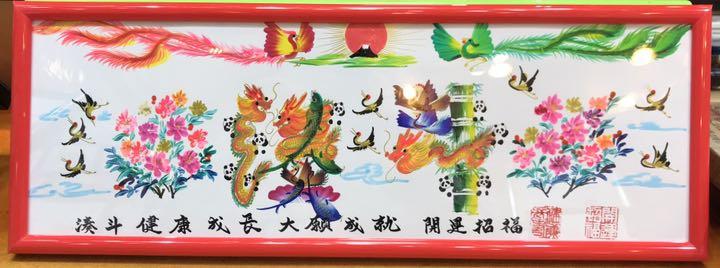 湊斗
湊斗 健康成長 大願成就 開運招福